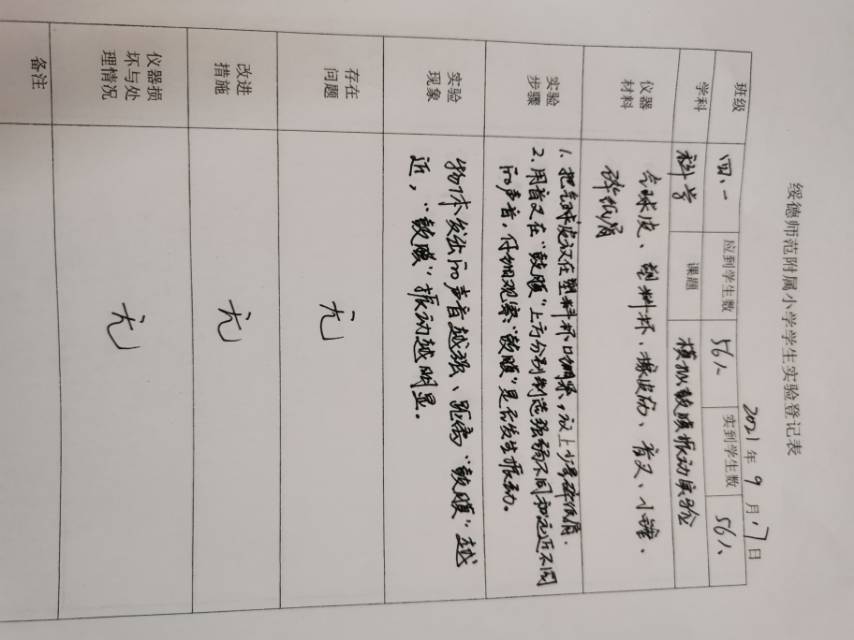 绥德师范附属小学学生实验登记表
2021年 9 月 17日
班级 四、一 应到学生数 56人 实到学生数 56人
学科 科学 课题 模拟鼓膜振动实验
仪器材料 气球皮、塑料杯、橡皮筋、音叉、小锤、
碎纸屑
实验步骤 1. 把气球皮in塑料杯口绷紧，放上少量碎纸屑.
2. 用音叉在“鼓膜”上方分别制造强弱不同和远近不同
的声音，仔细观察“鼓膜”是否发生振动。
实验现象 物体发出的声音越强、距离“鼓膜”越
近，“鼓膜”振动越明显。
存在问题 无
改进措施 无
仪器损坏与处理情况 无
备注